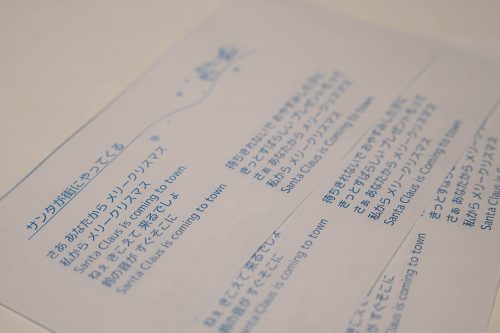 サンタが街にやってくる
さあ あなたから メリークリスマス
私から メリークリスマス
Santa Claus is coming to town
ねぇ きこえて 来るでしょ
鈴の音が すぐそこに
Santa Claus is coming to town
待ちきれないで おやすみした子に
きっとすばらしい プレゼントもって
さぁ あなたから メリークリスマス
私から メリークリスマス
Santa Claus is coming to town
ねぇ きこえて 来るでしょ
鈴の音が すぐそこに
Santa Claus is coming to town
待ちきれないで おやすみした子に
きっとすばらしい プレゼントもって
さぁ あなたから メリークリスマス
私から メリークリスマス
Santa Claus is coming to town
きっとすばらしい
さぁ あなたから メリークリスマス
私から メリークリスマス
Santa Claus is coming to town